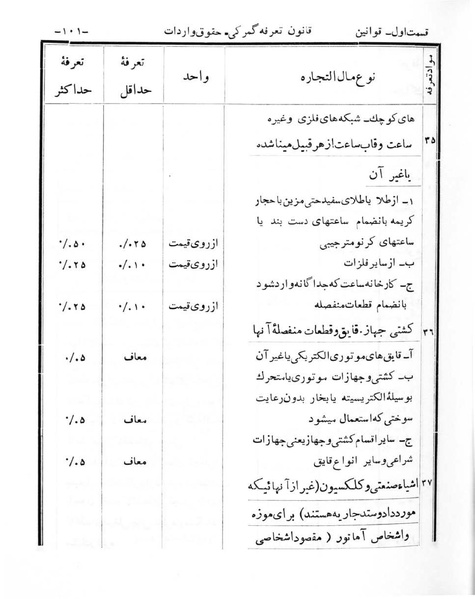 قسمت اول ـ قوانین قانون تعرفه گمرکی ـ حقوق واردات ـ۱۰۱ـ
مواد تعرفه نوع مال التجاره واحد تعرفهٔ حداقل تعرفهٔ حداکثر
های کوچک ـ شبکه های فلزی و غیره
۳۵ ساعت و قاب ساعت از هر قبیل مینا شده
یا غیر آن
۱ـ از طلا یا طلای سفید حتی مزین با حجار
کریمه بانضمام ساعتهای دست بند یا
ساعتهای کرنومترجیبی از روی قیمت ۰/۰۲۵ ۰/۰۵۰
ب ـ از سایر فلزات از روی قیمت ۰/۰۱۰ ۰/۰۲۵
ج ـ کارخانه ساعت که جداگانه وارد شود
بانضمام قطعات منفصله از روی قیمت ۰/۰۱۰ ۰/۰۲۵
۳۶ کشتی جهاز ـ قایق و قطعات منفصلهٔ آنها
آـ قایق های موتوری الکتریکی یا غیر آن معاف ۰/۰۵
ب ـ کشتی و جهازات موتوری یا متحرک
بوسیلهٔ الکتریسیته یا بخار بدون رعایت
سوختی که استعمال میشود معاف ۰/۰۵
ج ـ سایر اقسام کشتی و جهاز یعنی جهازات
شراعی و سایر انواع قایق معاف ۰/۰۵
۳۷ اشیاء صنعتی و کلکسیون (غیر از آنهائیکه
مورد داد و ستد جاریه هستند) برای موزه
و اشخاص آماتور ( مقصود اشخاصی